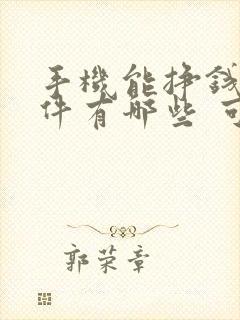 手機能掙錢
件有哪些 可
郭荣章